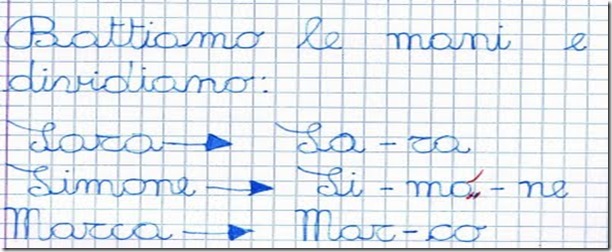 Battiamo le mani e
dividiamo:
Sara → Sa - ra
Simone → Si - mo - ne
Marca → Mar - co